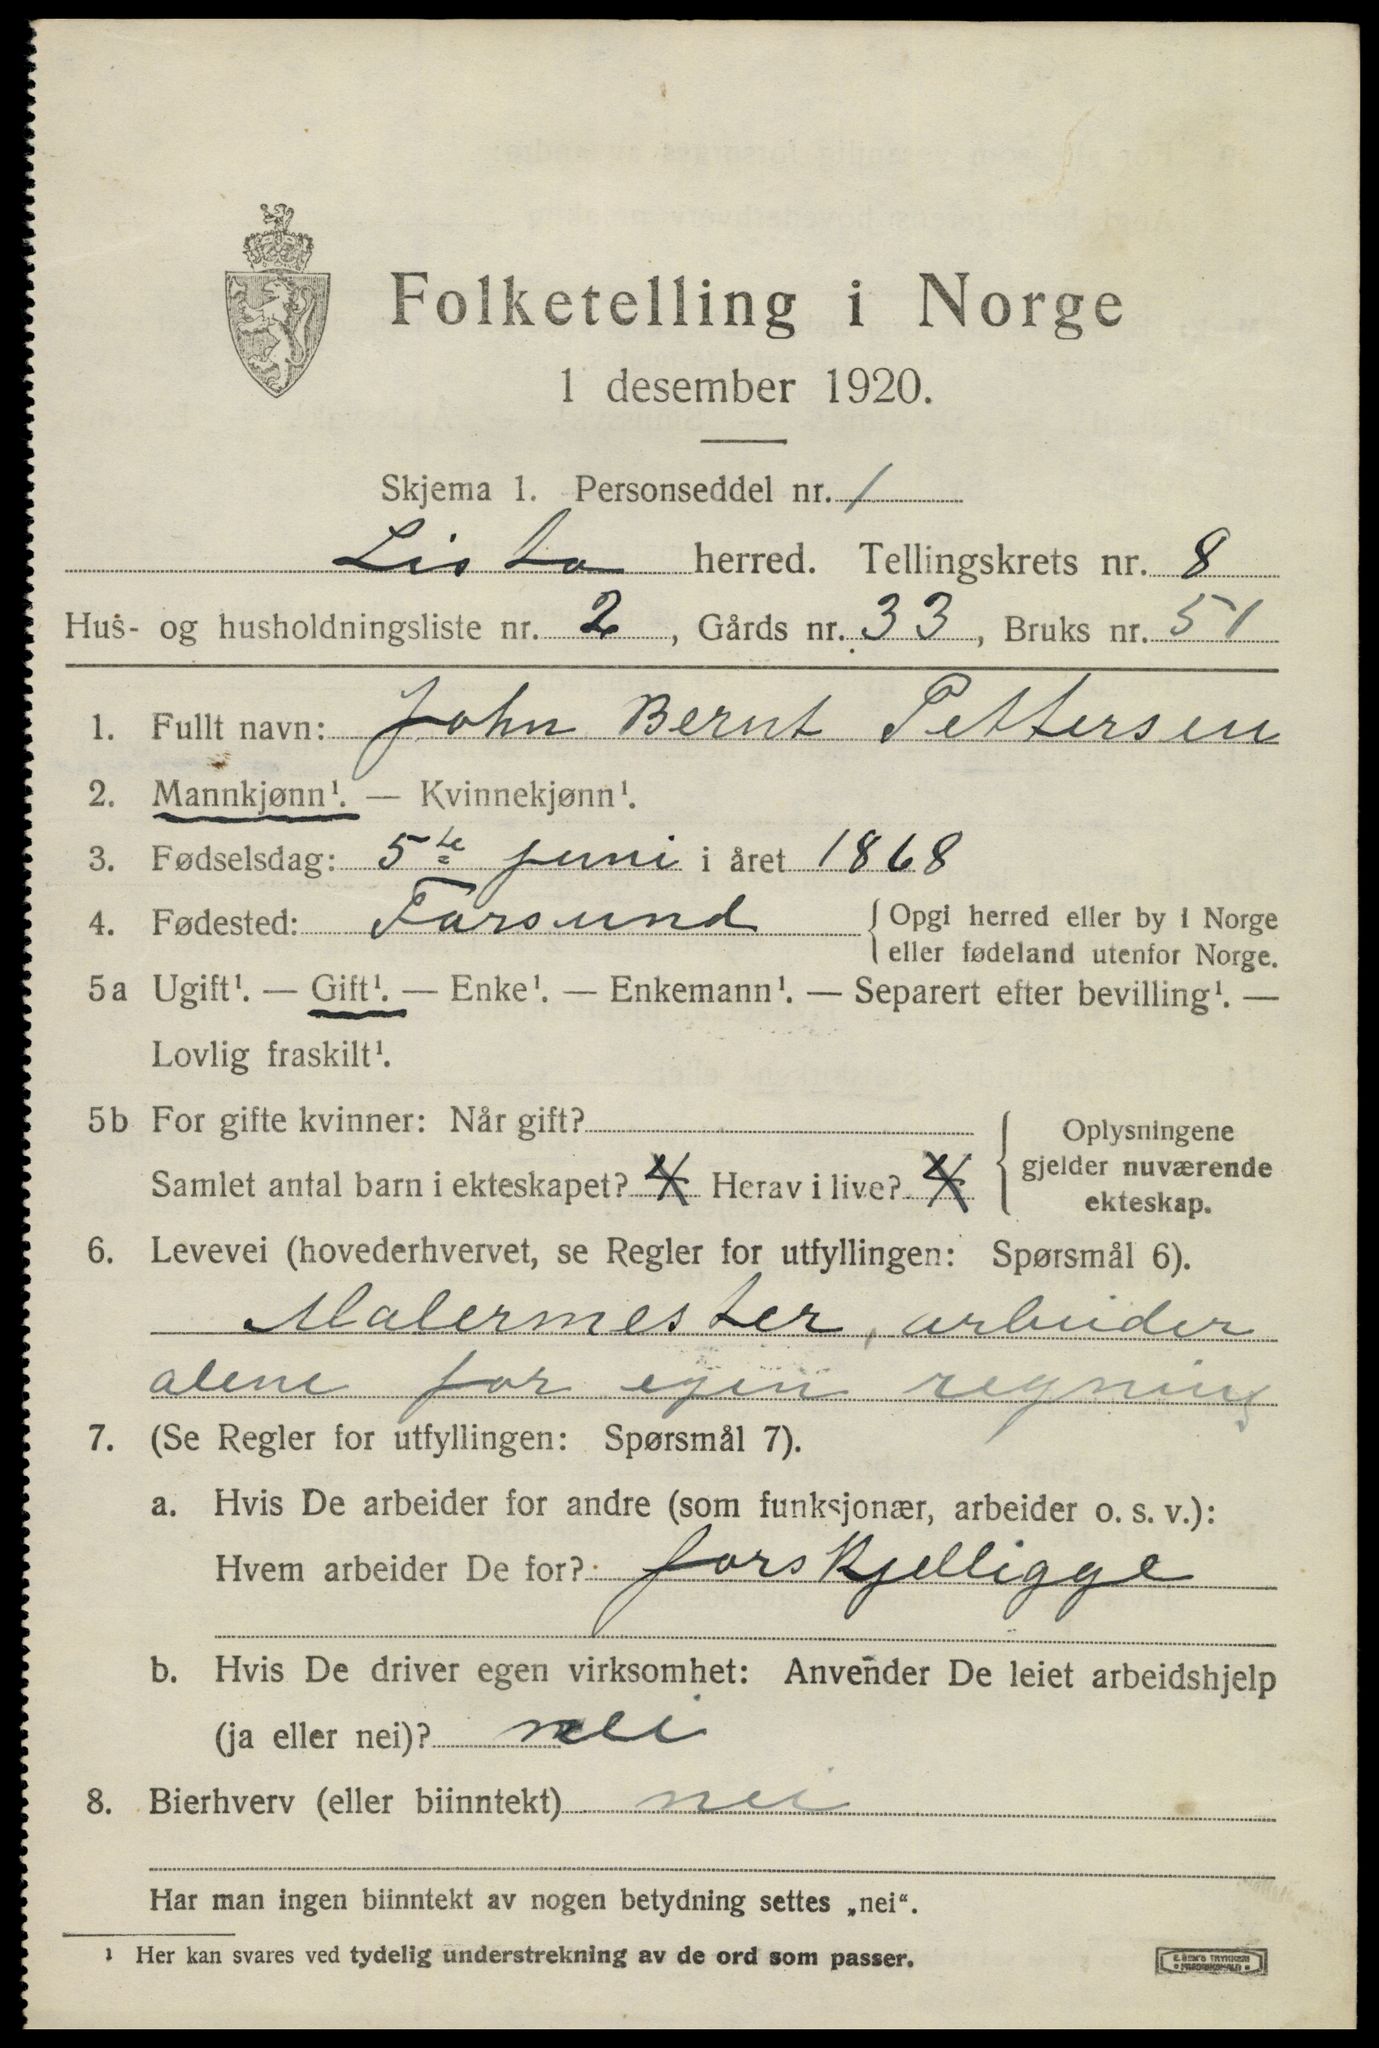 Folketelling i Norge
1 desember 1920.
Skjema 1. Personseddel nr. 1
Lista herred. Tellingskrets nr. 8
Hus- og husholdningsliste nr. 2, Gårds nr. 33, Bruks nr. 51
1. Fullt navn: John Bernt Pettersen
2. Mannkjønn¹. — Kvinnekjønn¹.
3. Fødselsdag: 5te juni i året 1868
4. Fødested: Farsund { Opgi herred eller by i Norge
eller fødeland utenfor Norge.
5a Ugift¹. — Gift¹. — Enke¹. — Enkemann¹. — Separert efter bevilling¹. —
Lovlig fraskilt¹.
5b For gifte kvinner: Når gift?
Samlet antal barn i ekteskapet? 4 Herav i live? 4
Oplysningene
gjelder nuværende
ekteskap.
6. Levevei (hovederhvervet, se Regler for utfyllingen: Spørsmål 6).
Malermester, arbeider
alene for egen regning
7. (Se Regler for utfyllingen: Spørsmål 7).
a. Hvis De arbeider for andre (som funksjonær, arbeider o. s. v.):
Hvem arbeider De for? forskjelligge
b. Hvis De driver egen virksomhet: Anvender De leiet arbeidshjelp
(ja eller nei)? nei
8. Bierhverv (eller biinntekt) nei
Har man ingen biinntekt av nogen betydning settes „nei“.
¹ Her kan svares ved tydelig understrekning av de ord som passer.